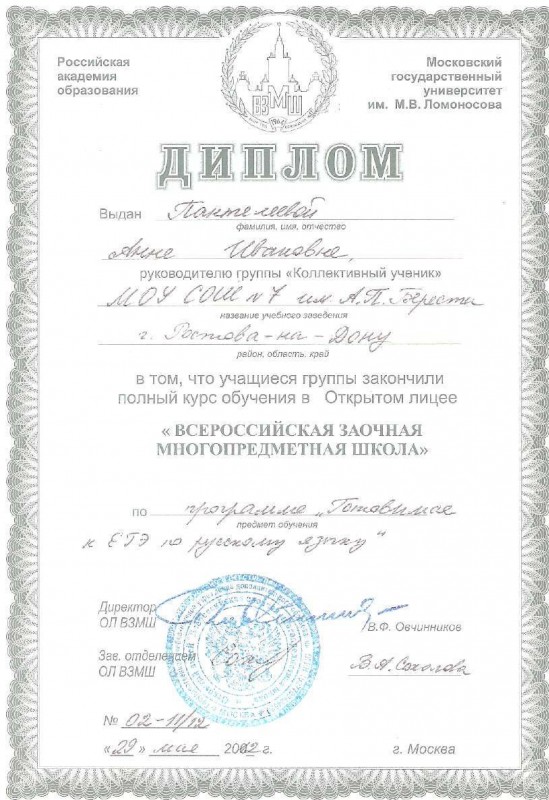 Российская
академия
образования
Московский
государственный
университет
им. М.В. Ломоносова
ВЗМШ
ДИПЛОМ
Выдан Пантелеевой
фамилия, имя, отчество
Анне Ивановне,
руководителю группы «Коллективный ученик»
МОУ СОШ №7 им. А.П. Береста
название учебного заведения
г. Ростова-на-Дону
район, область, край
в том, что учащиеся группы закончили
полный курс обучения в Открытом лицее
« ВСЕРОССИЙСКАЯ ЗАОЧНАЯ
МНОГОПРЕДМЕТНАЯ ШКОЛА»
по программе „Готовимся
предмет обучения
к ЕГЭ по русскому языку“
Директор
ОЛ ВЗМШ
В.Ф. Овчинников
Зав. отделением
ОЛ ВЗМШ
В.А. Соколова
№ 02-11/12
« 29 » мая 2012 г.
г. Москва